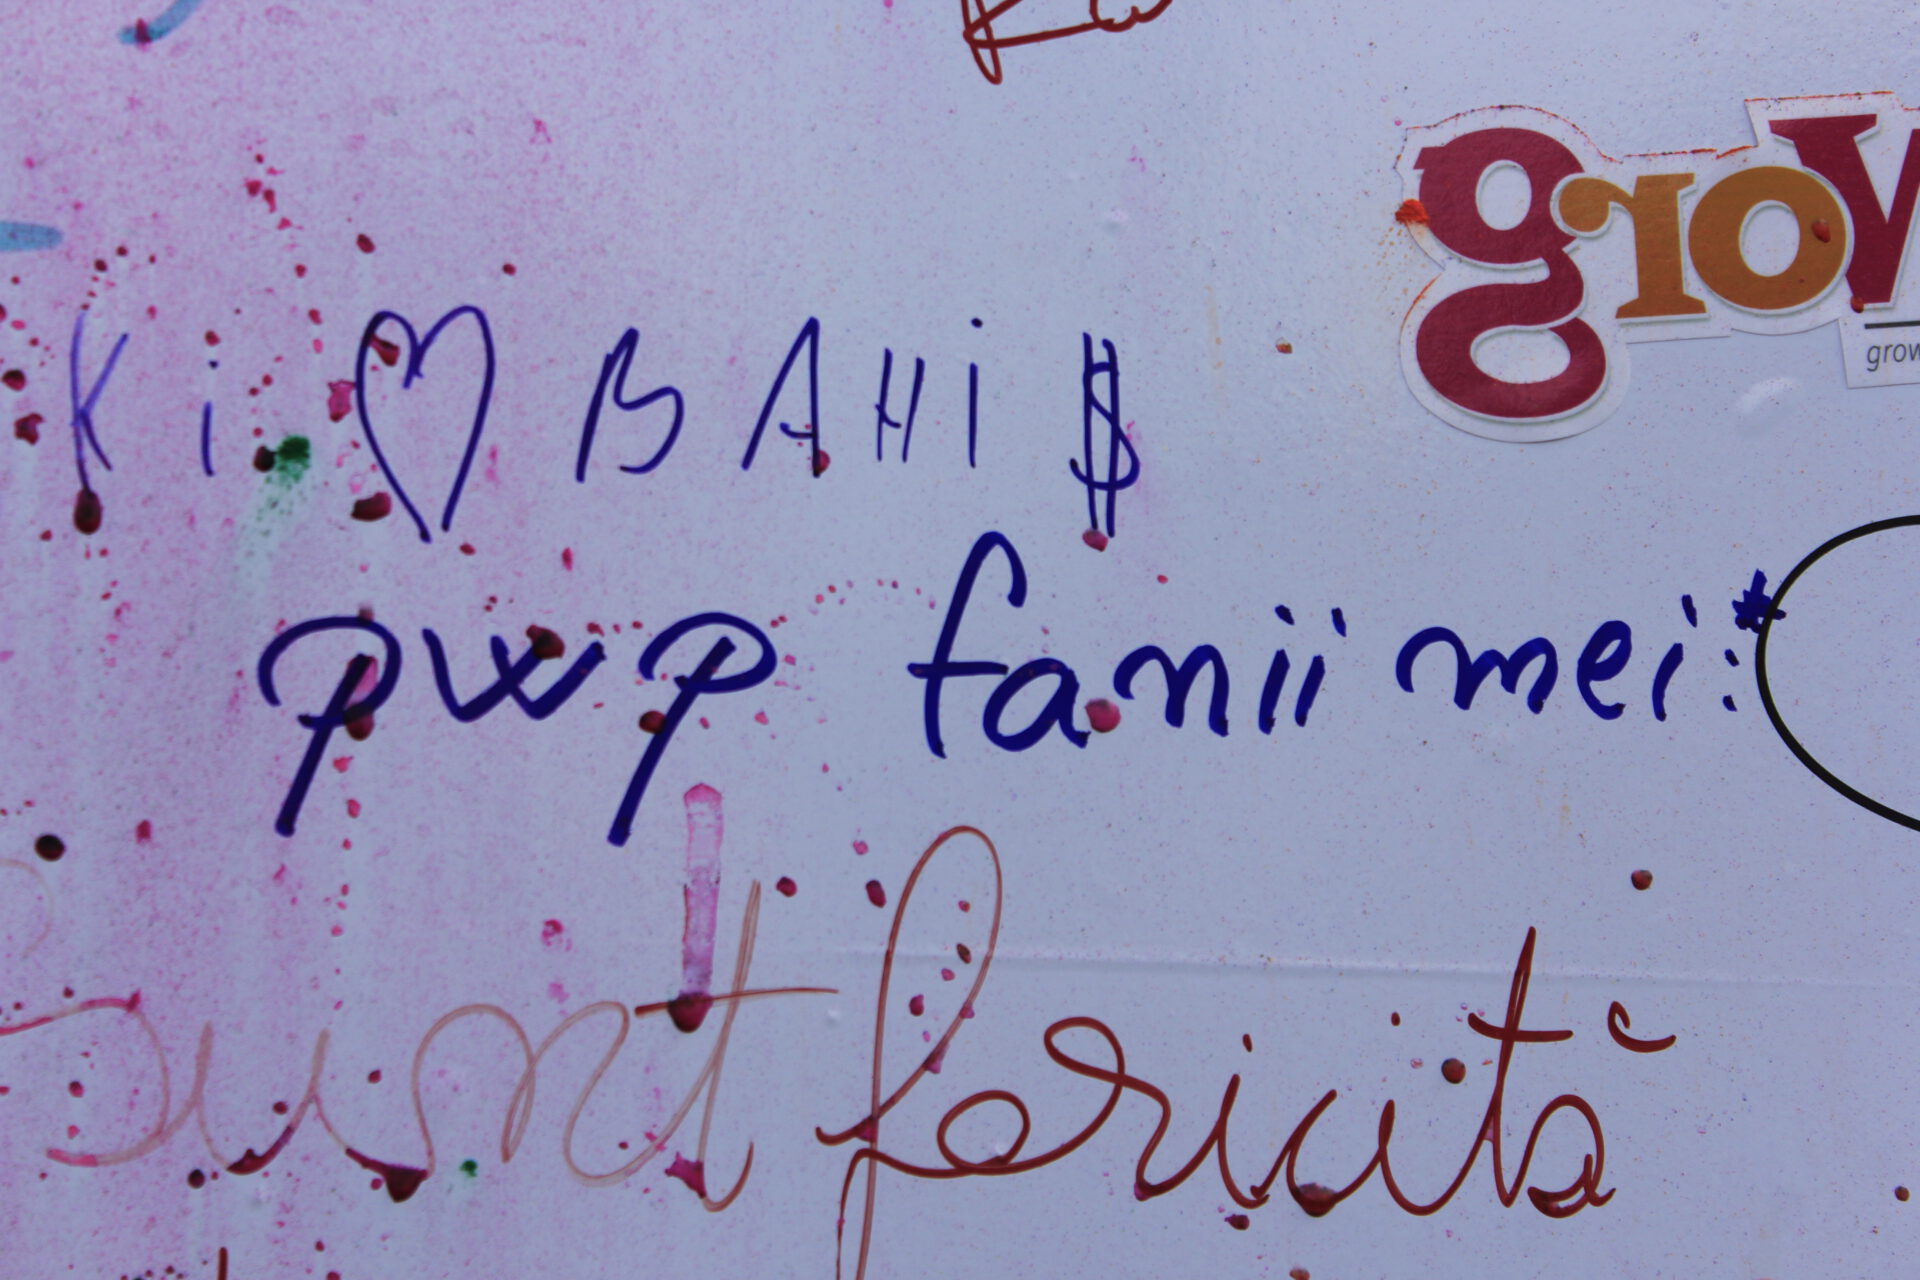 grow
grow
Ki ♡ BAHI $
pwp fanii mei :*
Sunt fericită